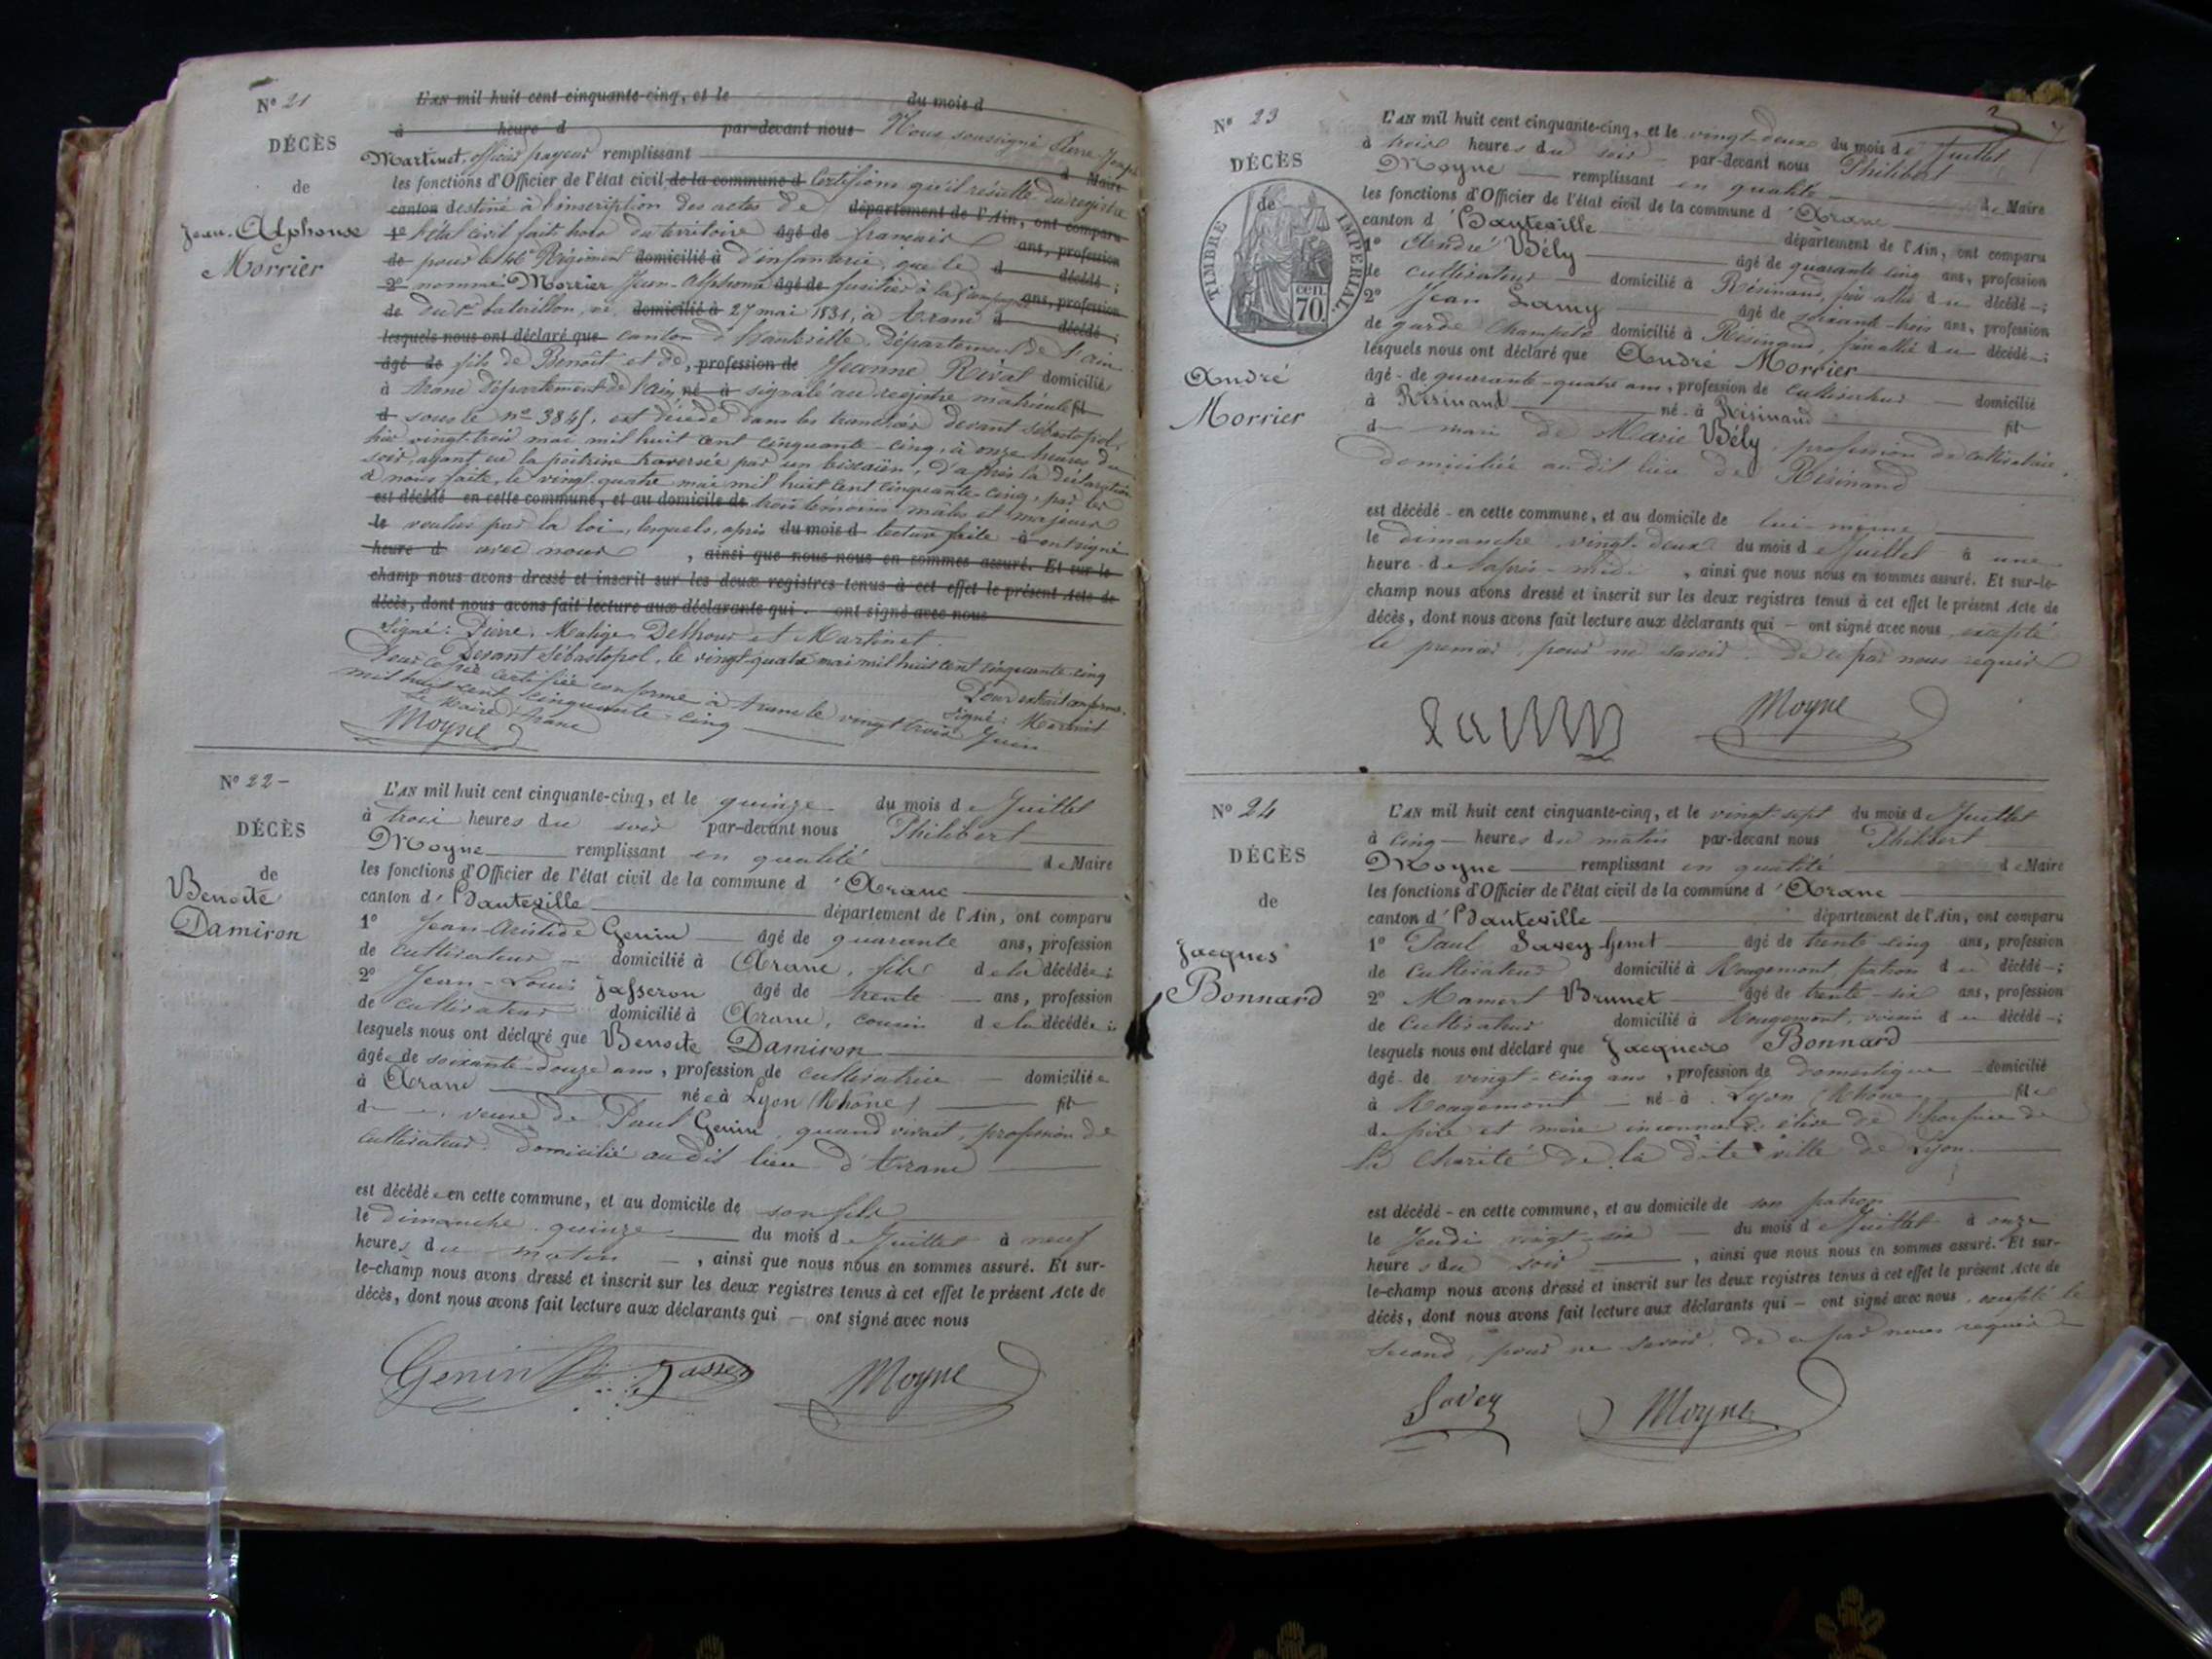 N° 21
DÉCÈS
de
Jean-Alphonse
Morrier
L'AN mil huit cent cinquante-cinq, et le du mois d
à heure d par-devant nous Nous soussigné Pierre Joseph
Martinet, officier payeur remplissant d Maire
les fonctions d'Officier de l'état civil de la commune d Certifions qu'il résulte du registre
canton destiné à l'inscription des actes de département de l'Ain, ont comparu
1° l'état civil fait hors du territoire âgé de français ans, profession
de pour le Régiment domicilié à d'infanterie, que le d décédé ;
2° nommé Morrier Jean-Alphonse âgé de fusilier à la Compagnie ans, profession
de du bataillon, né domicilié à 27 mai 1831, à Aranc d décédé ;
lesquels nous ont déclaré que canton d'Hauteville, Département de l'Ain
âgé de fils de Benoît et de, profession de Jeanne Rival domicilié
à Aranc Département de l'Ain, né à signalé au registre matricule fil
d sous le n° 3845, est décédé dans les tranchées devant Sébastopol,
hier vingt-trois mai mil huit cent cinquante-cinq, à onze heures du
soir, ayant eu la poitrine traversée par un biscaïen, d'après la déclaration
à nous faite, le vingt-quatre mai mil huit cent cinquante-cinq, par les
est décédé en cette commune, et au domicile de trois témoins mâles et majeurs
le voulus par la loi, lesquels, après du mois d lecture faite à ont signé
heure d avec nous , ainsi que nous nous en sommes assuré. Et sur-le-
champ nous avons dressé et inscrit sur les deux registres tenus à cet effet le présent Acte de
décès, dont nous avons fait lecture aux déclarants qui ont signé avec nous
Signé : Pierre, Malige, Delhour et Martinet.
Devant Sébastopol, le vingt-quatre mai mil huit cent cinquante-cinq
Pour extrait conforme.
Signé : Martinet
Pour copie certifiée conforme à Aranc le vingt trois Juin
mil huit cent cinquante-cinq
Le Maire d'Aranc
Moyne
N° 22-
DÉCÈS
de
Benoite
Damiron
L'AN mil huit cent cinquante-cinq, et le quinze du mois de Juillet
à trois heures du soir par-devant nous Philibert
Moyne remplissant en qualité de Maire
les fonctions d'Officier de l'état civil de la commune d'Aranc
canton d'Hauteville département de l'Ain, ont comparu
1° Jean-Aristide Genin âgé de quarante ans, profession
de cultivateur domicilié à Aranc, fils de la décédée ;
2° Jean-Louis Jasseron âgé de trente ans, profession
de cultivateur domicilié à Aranc, cousin de la décédée ;
lesquels nous ont déclaré que Benoite Damiron
âgée de soixante-douze ans, profession de cultivatrice domiciliée
à Aranc née à Lyon (Rhône) fil
d veuve de Paul Genin, quand vivait, profession de
cultivateur, domicilié au dit lieu d'Aranc
est décédée en cette commune, et au domicile de son fils
le dimanche quinze du mois de Juillet à neuf
heures du matin , ainsi que nous nous en sommes assuré. Et sur-
le-champ nous avons dressé et inscrit sur les deux registres tenus à cet effet le présent Acte de
décès, dont nous avons fait lecture aux déclarants qui ont signé avec nous
Genin Jasseron Moyne
3
N° 23
DÉCÈS
de
TIMBRE IMPÉRIAL.
cen.
70.
André
Morrier
L'AN mil huit cent cinquante-cinq, et le vingt-deux du mois de Juillet
à trois heures du soir par-devant nous Philibert
Moyne remplissant en qualité de Maire
les fonctions d'Officier de l'état civil de la commune d'Aranc
canton d'Hauteville département de l'Ain, ont comparu
1° André Bély âgé de quarante cinq ans, profession
de cultivateur domicilié à Résinand, allié du décédé ;
2° Jean Lamy âgé de soixante-trois ans, profession
de garde champêtre domicilié à Résinand, allié du décédé ;
lesquels nous ont déclaré que André Morrier
âgé de quarante-quatre ans, profession de cultivateur domicilié
à Résinand né à Résinand fil
d mari de Marie Bély, profession de cultivatrice,
domiciliée au dit lieu de Résinand
est décédé en cette commune, et au domicile de lui-même
le dimanche vingt-deux du mois de Juillet à une
heure de l'après-midi , ainsi que nous nous en sommes assuré. Et sur-le-
champ nous avons dressé et inscrit sur les deux registres tenus à cet effet le présent Acte de
décès, dont nous avons fait lecture aux déclarants qui ont signé avec nous, excepté
le premier, pour ne savoir, de ce par nous requis
Moyne
N° 24
DÉCÈS
de
Jacques
Bonnard
L'AN mil huit cent cinquante-cinq, et le vingt-sept du mois de Juillet
à cinq heures du matin par-devant nous Philibert
Moyne remplissant en qualité de Maire
les fonctions d'Officier de l'état civil de la commune d'Aranc
canton d'Hauteville département de l'Ain, ont comparu
1° Paul Savey-Genet âgé de trente-cinq ans, profession
de cultivateur domicilié à Rougemont, patron du décédé ;
2° Mamert Brunet âgé de trente-six ans, profession
de cultivateur domicilié à Rougemont, voisin du décédé ;
lesquels nous ont déclaré que Jacques Bonnard
âgé de vingt-cinq ans, profession de domestique domicilié
à Rougemont né à Lyon (Rhône) fils
de père et mère inconnus, élève de l'hospice de
la Charité de la dite ville de Lyon
est décédé en cette commune, et au domicile de son patron
le Jeudi vingt-six du mois de Juillet à onze
heures du soir , ainsi que nous nous en sommes assuré. Et sur-
le-champ nous avons dressé et inscrit sur les deux registres tenus à cet effet le présent Acte de
décès, dont nous avons fait lecture aux déclarants qui ont signé avec nous, excepté le
second, pour ne savoir, de ce par nous requis
Savey Moyne